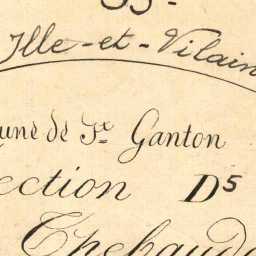 35.
Ille-et-Vilain
une de St Ganton
ection D5
Thébauda